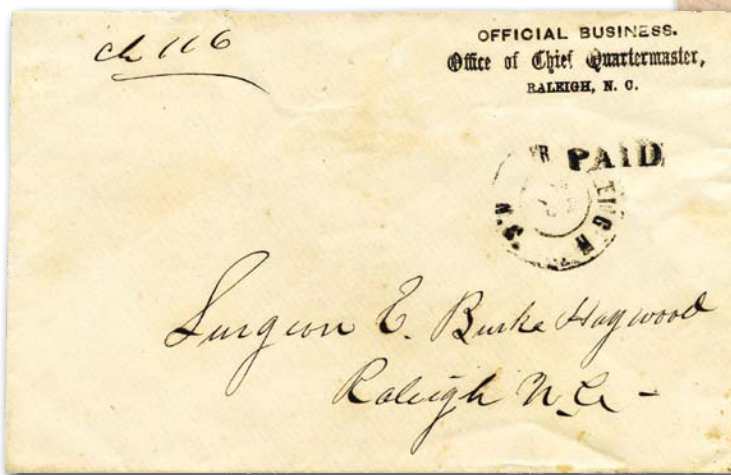 ch 116
OFFICIAL BUSINESS.
Office of Chief Quartermaster,
RALEIGH, N. C.
PAID
N.C.
Surgeon E. Burke Haywood
Raleigh N. Ca -